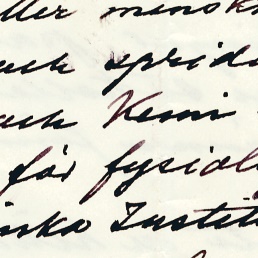 ller mensk
och sprida
och Kemi
för fysiol
inska Institu